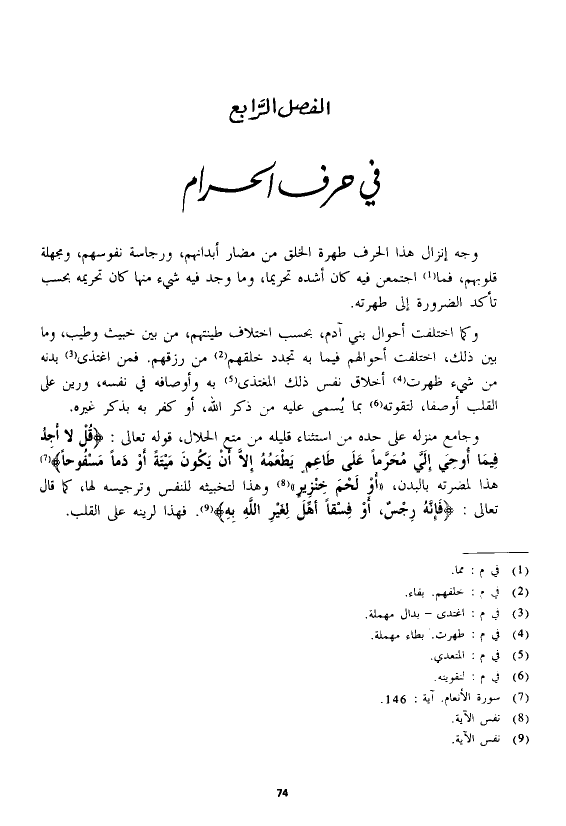 الفصل الرَّابع
في حرف الحرام
وجه إنزال هذا الحرف طهرة الخلق من مضار أبدانهم، ورجاسة نفوسهم، ومجهلة
قلوبهم، فما(1) اجتمعن فيه كان أشده تحريما، وما وجد فيه شيء منها كان تحريمه بحسب
تأكد الضرورة إلى طهرته.
وكما اختلفت أحوال بني آدم، بحسب اختلاف طينتهم، من بين خبيث وطيب، وما
بين ذلك، اختلفت أحوالهم فيما به تجدد خلقهم(2) من رزقهم. فمن اغتذى(3) بدنه
من شيء ظهرت(4) أخلاق نفس ذلك المغتذى(5) به وأوصافه في نفسه، ورين على
القلب أوصفا، لتقوته(6) بما يُسمى عليه من ذكر الله، أو كفر به بذكر غيره.
وجامع منزله على حده من استثناء قليله من متع الحلال، قوله تعالى : ﴿قُلْ لا أَجِدُ
فِيمَا أُوحِيَ إِلَيَّ مُحَرَّماً عَلَى طَاعِمٍ يَطْعَمُهُ إِلاَّ أَنْ يَكُونَ مَيْتَةً أَوْ دَماً مَسْفُوحاً﴾(7)
هذا لمضرته بالبدن، «أَوْ لَحْمَ خِنْزِيرٍ»(8) وهذا لتخبيثه للنفس وترجيسه لها، كما قال
تعالى : ﴿فَإِنَّهُ رِجْسٌ، أَوْ فِسْقاً أُهِلَّ لِغَيْرِ اللَّهِ بِهِ﴾(9). فهذا لرينه على القلب.
(1) في م : مما.
(2) في م : خلفهم. بفاء.
(3) في م : اغتدى – بدال مهملة.
(4) في م : طهرت. بطاء مهملة.
(5) في م : المتعدي.
(6) في م : لتقوينه.
(7) سورة الأنعام. آية : 146.
(8) نفس الآية.
(9) نفس الآية.
74